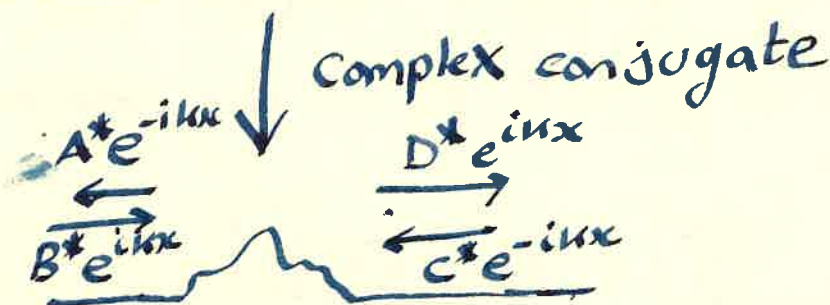 Complex conjugate
A*e^-ikx D*e^ikx
B*e^ikx C*e^-ikx